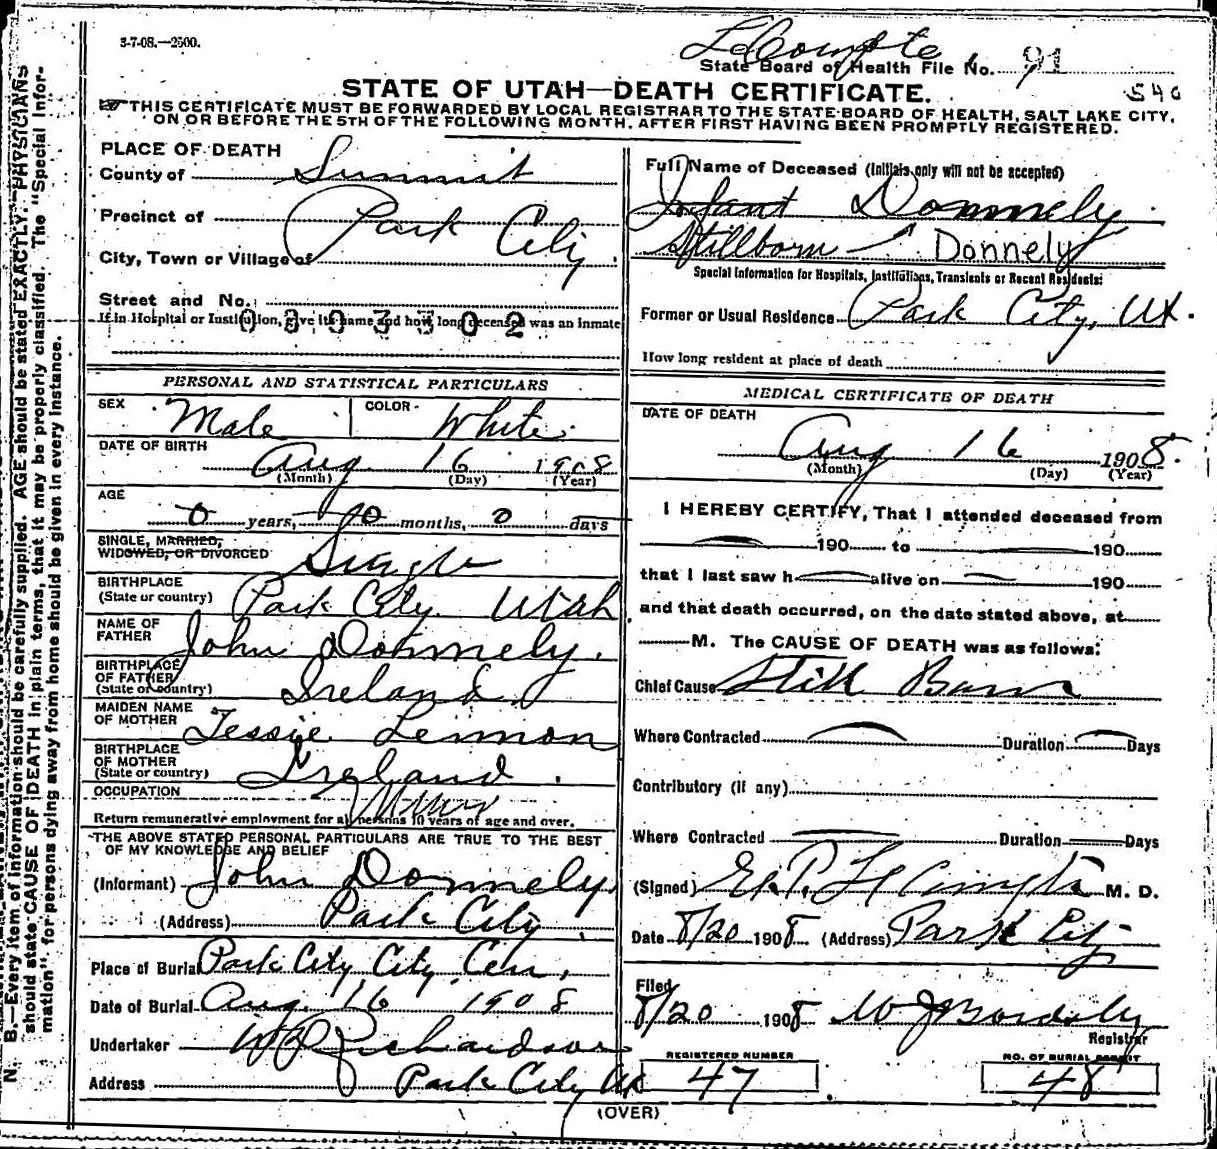 3-7-08.—2500.
LeCompte
State Board of Health File No. 91
540
STATE OF UTAH—DEATH CERTIFICATE.
THIS CERTIFICATE MUST BE FORWARDED BY LOCAL REGISTRAR TO THE STATE BOARD OF HEALTH, SALT LAKE CITY,
ON OR BEFORE THE 5TH OF THE FOLLOWING MONTH, AFTER FIRST HAVING BEEN PROMPTLY REGISTERED.
PLACE OF DEATH
County of Summit
Precinct of Park City
City, Town or Village of
Street and No.
If in Hospital or Institution, give its name and how long deceased was an inmate
0803302
Full Name of Deceased (Initials only will not be accepted)
Infant Donnely
Stillborn Donnely
Special Information for Hospitals, Institutions, Transients or Recent Residents:
Former or Usual Residence Park City, Ut.
How long resident at place of death
PERSONAL AND STATISTICAL PARTICULARS
SEX Male COLOR White
DATE OF BIRTH Aug 16 1908
(Month) (Day) (Year)
AGE
0 years, 0 months, 0 days
SINGLE, MARRIED,
WIDOWED, OR DIVORCED Single
BIRTHPLACE
(State or country) Park City Utah
NAME OF
FATHER John Donnely.
BIRTHPLACE
OF FATHER
(State or country) Ireland
MAIDEN NAME
OF MOTHER Tessie Lennon
BIRTHPLACE
OF MOTHER
(State or country) Ireland.
OCCUPATION
Return remunerative employment for all persons 10 years of age and over.
THE ABOVE STATED PERSONAL PARTICULARS ARE TRUE TO THE BEST
OF MY KNOWLEDGE AND BELIEF
(Informant) John Donnely
(Address) Park City
Place of Burial Park City City Cem.
Date of Burial Aug. 16 1908
Undertaker W Richardson
Address Park City Ut
MEDICAL CERTIFICATE OF DEATH
DATE OF DEATH
Aug 16 1908.
(Month) (Day) (Year)
I HEREBY CERTIFY, That I attended deceased from
190 to 190
that I last saw h alive on 190
and that death occurred, on the date stated above, at
M. The CAUSE OF DEATH was as follows:
Chief Cause Still Born
Where Contracted Duration Days
Contributory (if any)
Where Contracted Duration Days
(Signed) LeCompte M. D.
Date 8/20 1908 (Address) Park City
Filed
8/20 1908 W J Bardsly
Registrar
REGISTERED NUMBER
47
NO. OF BURIAL PERMIT
48
(OVER)
N. B.—Every item of information should be carefully supplied. AGE should be stated EXACTLY. PHYSICIANS
should state CAUSE OF DEATH in plain terms, that it may be properly classified. The "Special Infor-
mation" for persons dying away from home should be given in every instance.